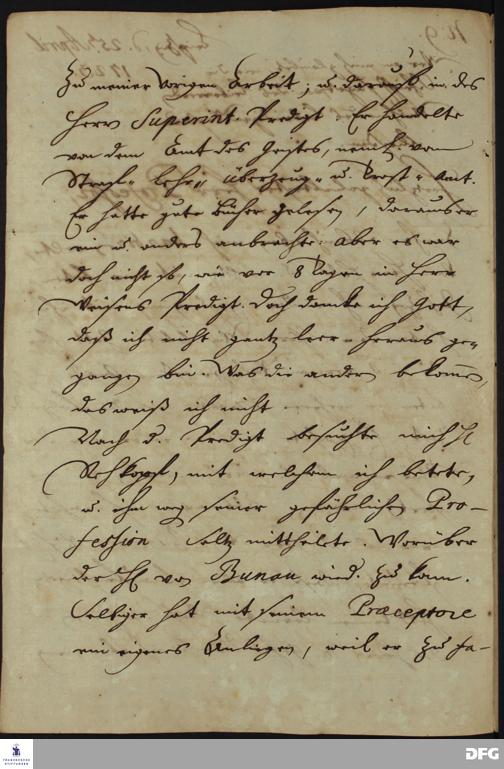 zu meiner vorigen Arbeit; u. darauf in des
Herrn Superint. Predigt. Er handelte
von dem Amt des Geistes, nemlich vom
Straf- Lehr- überzeug- u. Trost-Amt.
Er hatte gute Bücher gelesen, daraus er
ein u. anders anbrachte: aber es war
doch nicht so, wie vor 8 Tagen in Herr
Weisens Predigt. Doch dancke ich Gott,
daß ich nicht gantz leer heraus ge-
gangen bin. Was die andern bekomen,
das weiß ich nicht
Nach d. Predigt besuchte mich H
Rehkopf, mit welchem ich betete,
u. ihm weg seiner gefährlichen Pro-
fession mittheilete. Worüber
der H von Bunau wied. zu kam.
Selbiger hat mit seinem Præceptore
ein eigenes Anliegen, weil er zu Ja-
FRANCKESCHE
STIFTUNGEN
DFG